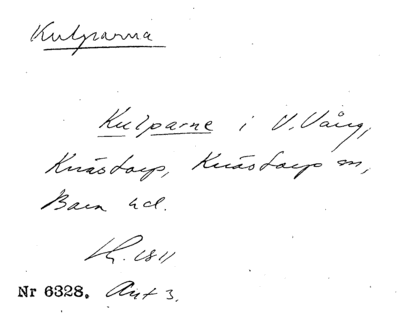 Kulparna
Kulparne i V. Vång,
Knästorp, Knästorp sn,
Bara hd.
Lh. 1811
Nr 6328. Akt 3.